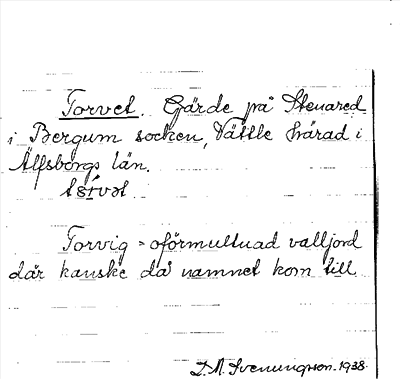 Torvet. Gärde på Stenared
i Bergum socken, Vättle härad i
Älfsborgs län.
Torvig = oförmultnad valljord
där kanske då namnet kom till
D. A. Svenungsson. 1938.